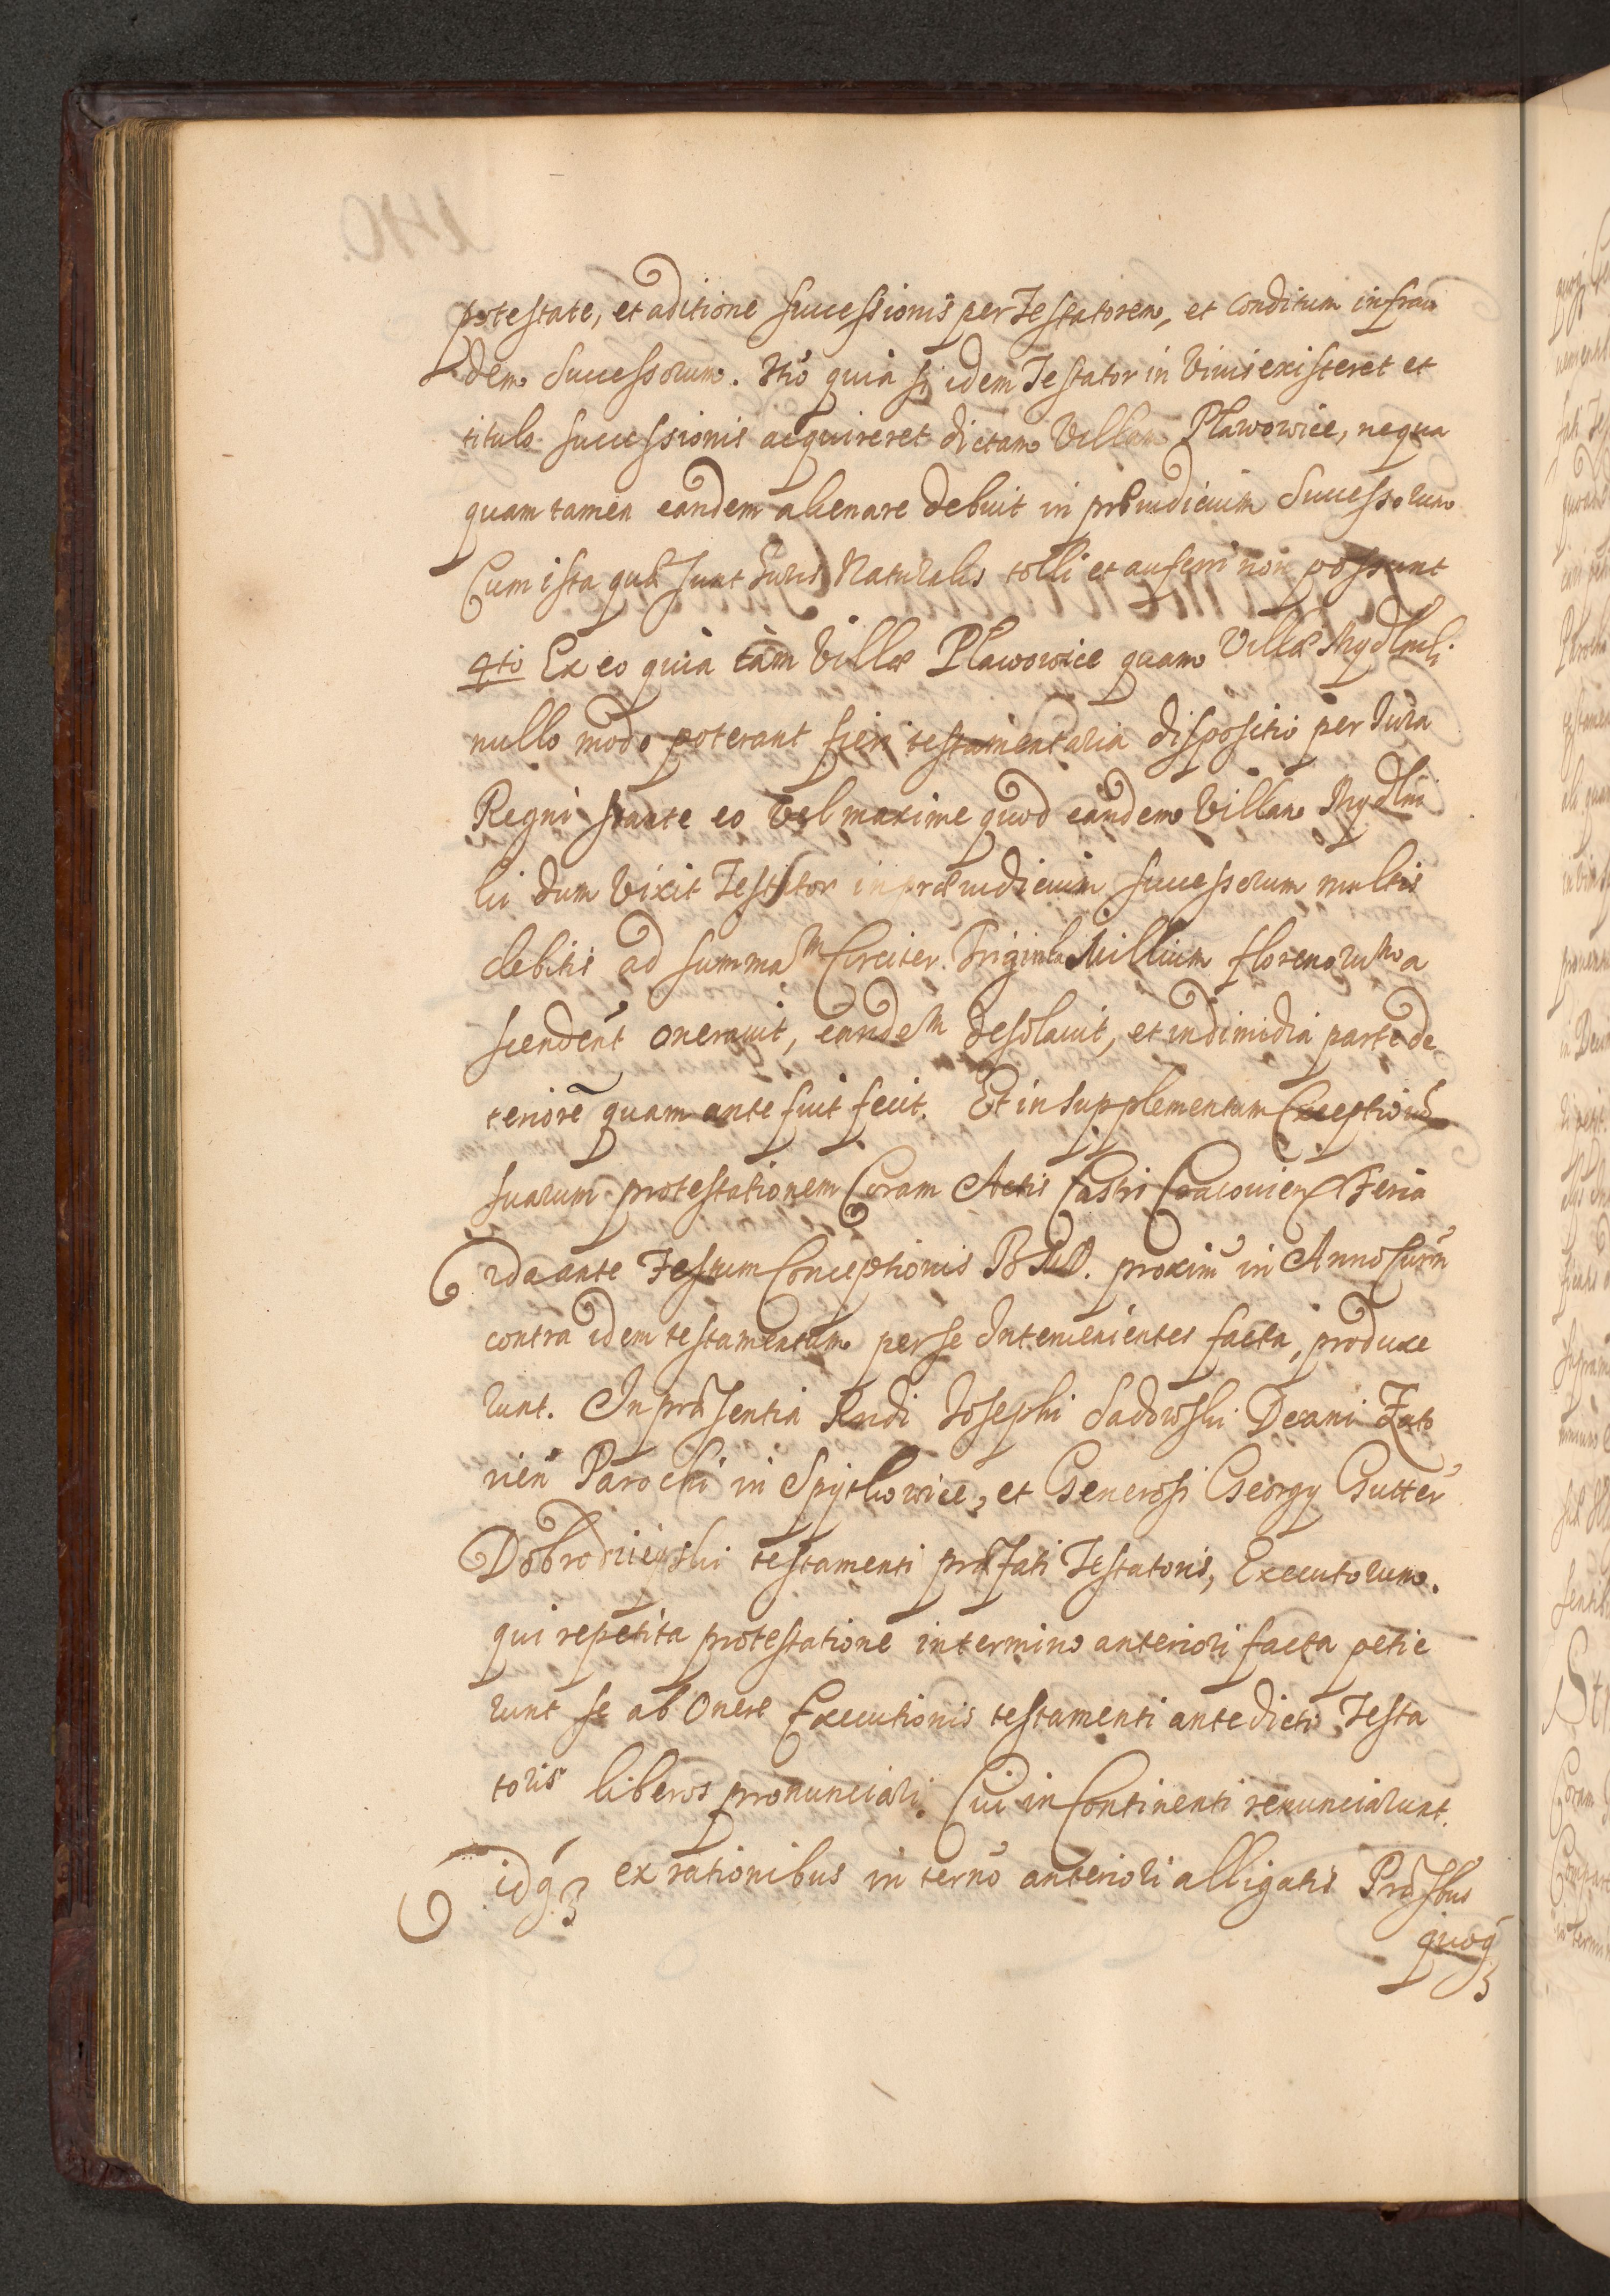 potestate, et aditione successionis per Testatorem, et conditum in frau
dem Successorum. 3tio quia si idem Testator in vivis existeret et
titulo successionis acquireret dictam Villam Plawowice, nequa
quam tamen eandem alienare debuit in præiudicium Successorum
Cum ista quæ sunt Juris Naturalis tolli et auferri non possunt
4to Ex eo quia tam Villæ Plawowice quam Villæ Mydlniki
nullo modo poterant fieri testamentaria dispositio per Jura
Regni stante eo vel maxime quod eandem Villam Mydlni
ki dum vixit Testator in præiudicium successorum multis
debitis ad summam Circiter Triginta Millium florenorum a
scendent oneravit, eandem desolavit, et in dimidia parte de
teriorē quam ante fuit fecit. Et in supplementum Exceptionū
suarum protestationem Coram Actis Castri Cracovien Feria
2da ante Festum Conceptionis B M V. proxim in Anno Curn
contra idem testamentum per se Intervenientes facta, produxe
runt. In præsentia Rndi Josephi Sadowski Decani Zato
rien Parochi in Spytkowice, et Generosi Georgy Gutter
Dobrodzieyski testamenti præfati Testatoris, Executorum.
qui repetita protestatione in termino anteriori facta petie
runt se ab Onere Executionis testamenti ante dicti Testa
toris liberos pronunciari. Cui in Continenti renunciarunt.
idq3 ex rationibus in terno anteriori alligatis Præsbus
quoq3